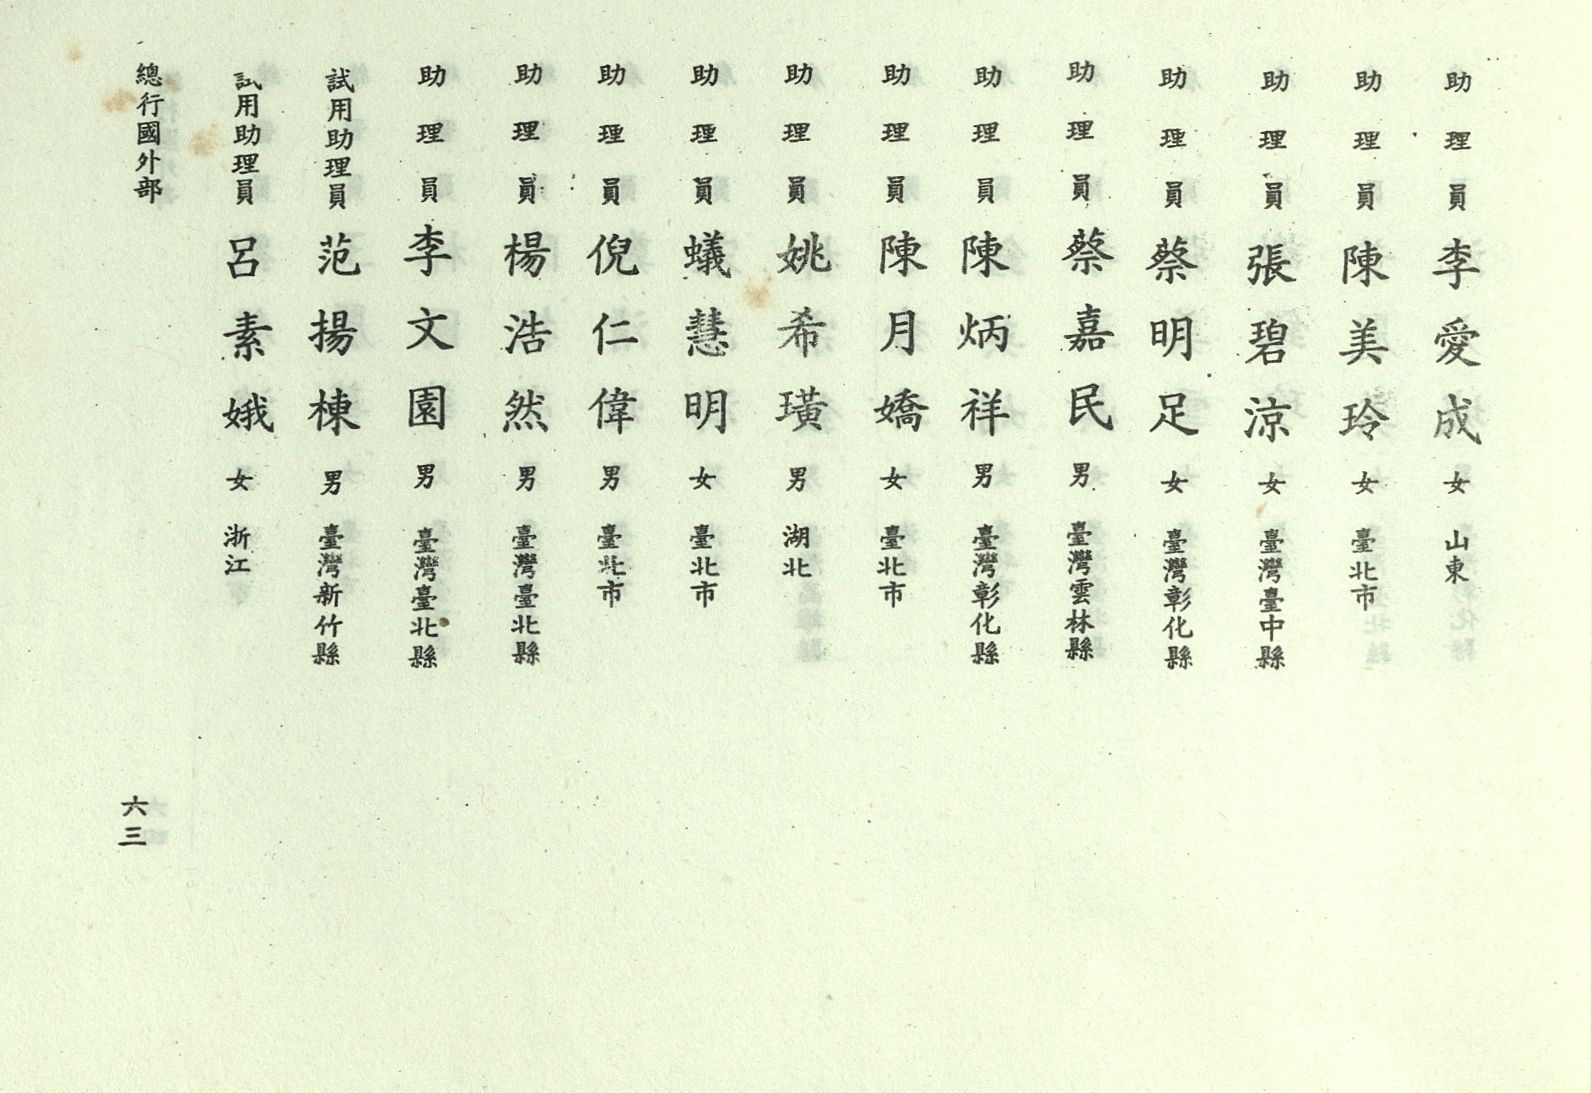 助理員 李愛成 女 山東
助理員 陳美玲 女 臺北市
助理員 張碧涼 女 臺灣臺中縣
助理員 蔡明足 女 臺灣彰化縣
助理員 蔡嘉民 男 臺灣雲林縣
助理員 陳炳祥 男 臺灣彰化縣
助理員 陳月嬌 女 臺北市
助理員 姚希璜 男 湖北
助理員 蟻慧明 女 臺北市
助理員 倪仁偉 男 臺北市
助理員 楊浩然 男 臺灣臺北縣
助理員 李文園 男 臺灣臺北縣
試用助理員 范揚棟 男 臺灣新竹縣
試用助理員 呂素娥 女 浙江
總行國外部
六三